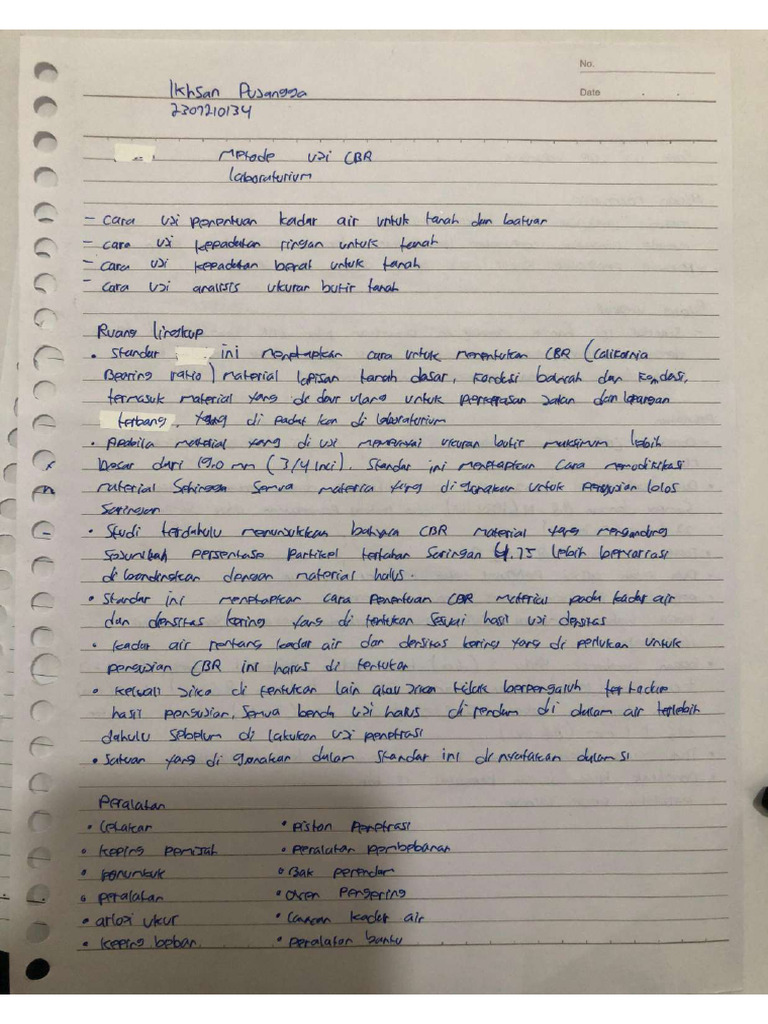 No.
Date
Ikhsan Pusangga
2307210134
Metode uji CBR
laboraturium
- cara uji penentuan kadar air untuk tanah dan batuan
- cara uji kepadatan ringan untuk tanah
- cara uji kepadatan berat untuk tanah
- cara uji analisis ukuran butir tanah
Ruang lingkup
• Standar ini menetapkan cara untuk menentukan CBR (California
Bearing ratio) material lapisan tanah dasar, bawah dan
termasuk material yang de daur ulang untuk perkerasan jalan dan lapangan
terbang, yang di padat kan di laboratorium
• Apabila material yang di uji mempunyai ukuran butir maksimum lebih
besar dari 19.0 mm (3/4 inci). Standar ini menetapkan cara memodifikasi
material sehingga semua materia yang di gunakan untuk pengujian lolos
saringan
• Studi terdahulu menunjukkan bahwa CBR material yang mengandung
persentase partikel tertahan saringan 4.75 lebih bervariasi
di bandingkan dengan material halus.
• Standar ini menetapkan cara penentuan CBR material pada kadar air
dan densitas kering yang di tentukan sesuai hasil uji densitas
• kadar air rentang kadar air dan densitas kering yang di perlukan untuk
pengujian CBR ini harus di tentukan
• kecuali jika di tentukan lain atau jika tidak berpengaruh terhadap
hasil pengujian, semua benda uji harus di rendam di dalam air terlebih
dahulu sebelum di lakukan uji penetrasi
• Satuan yang di gunakan dalam standar ini di nyatakan dalam si
Peralatan
• Cetakan
• keping pemisah
• penumbuk
• peralatan
• arloji ukur
• keping beban
• Piston Penetrasi
• Peralatan Pembebanan
• Bak perendam
• Oven Pengering
• Cawan kadar air
• Peralatan bantu